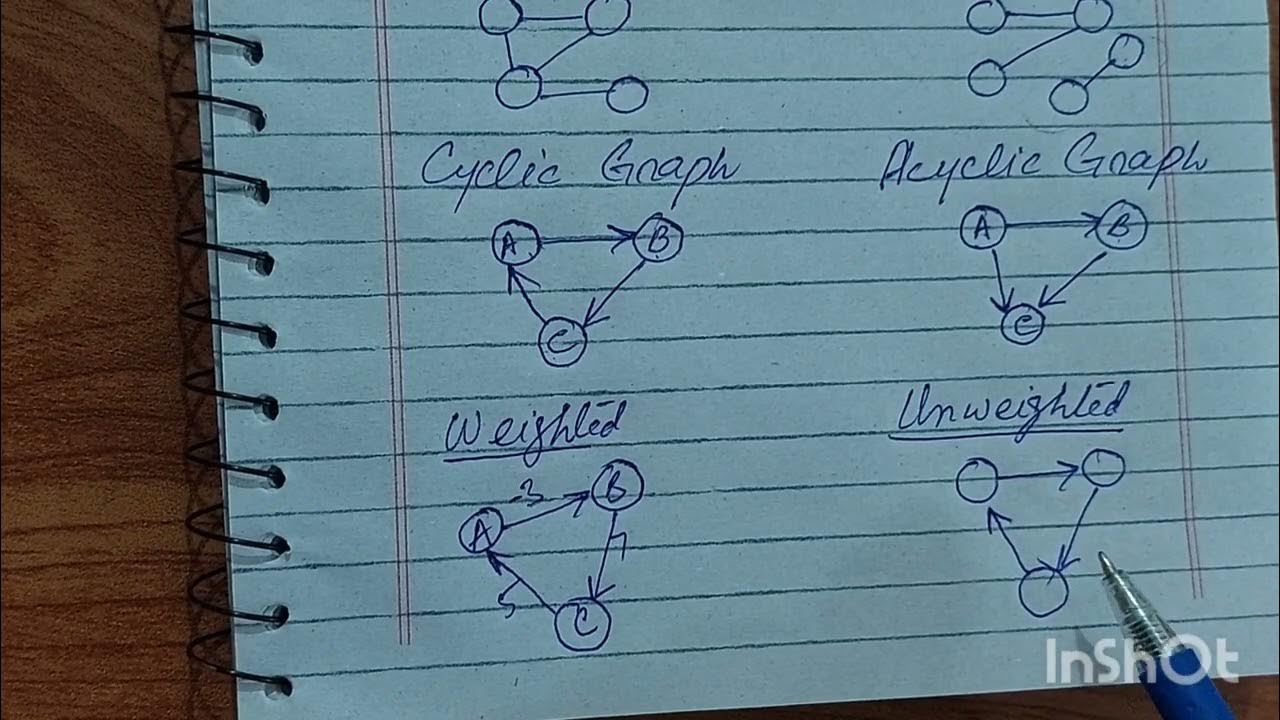 Cyclic Graph
Acyclic Graph
A
B
C
A
B
C
Weighted
Unweighted
3
A
B
7
5
C
InShOt